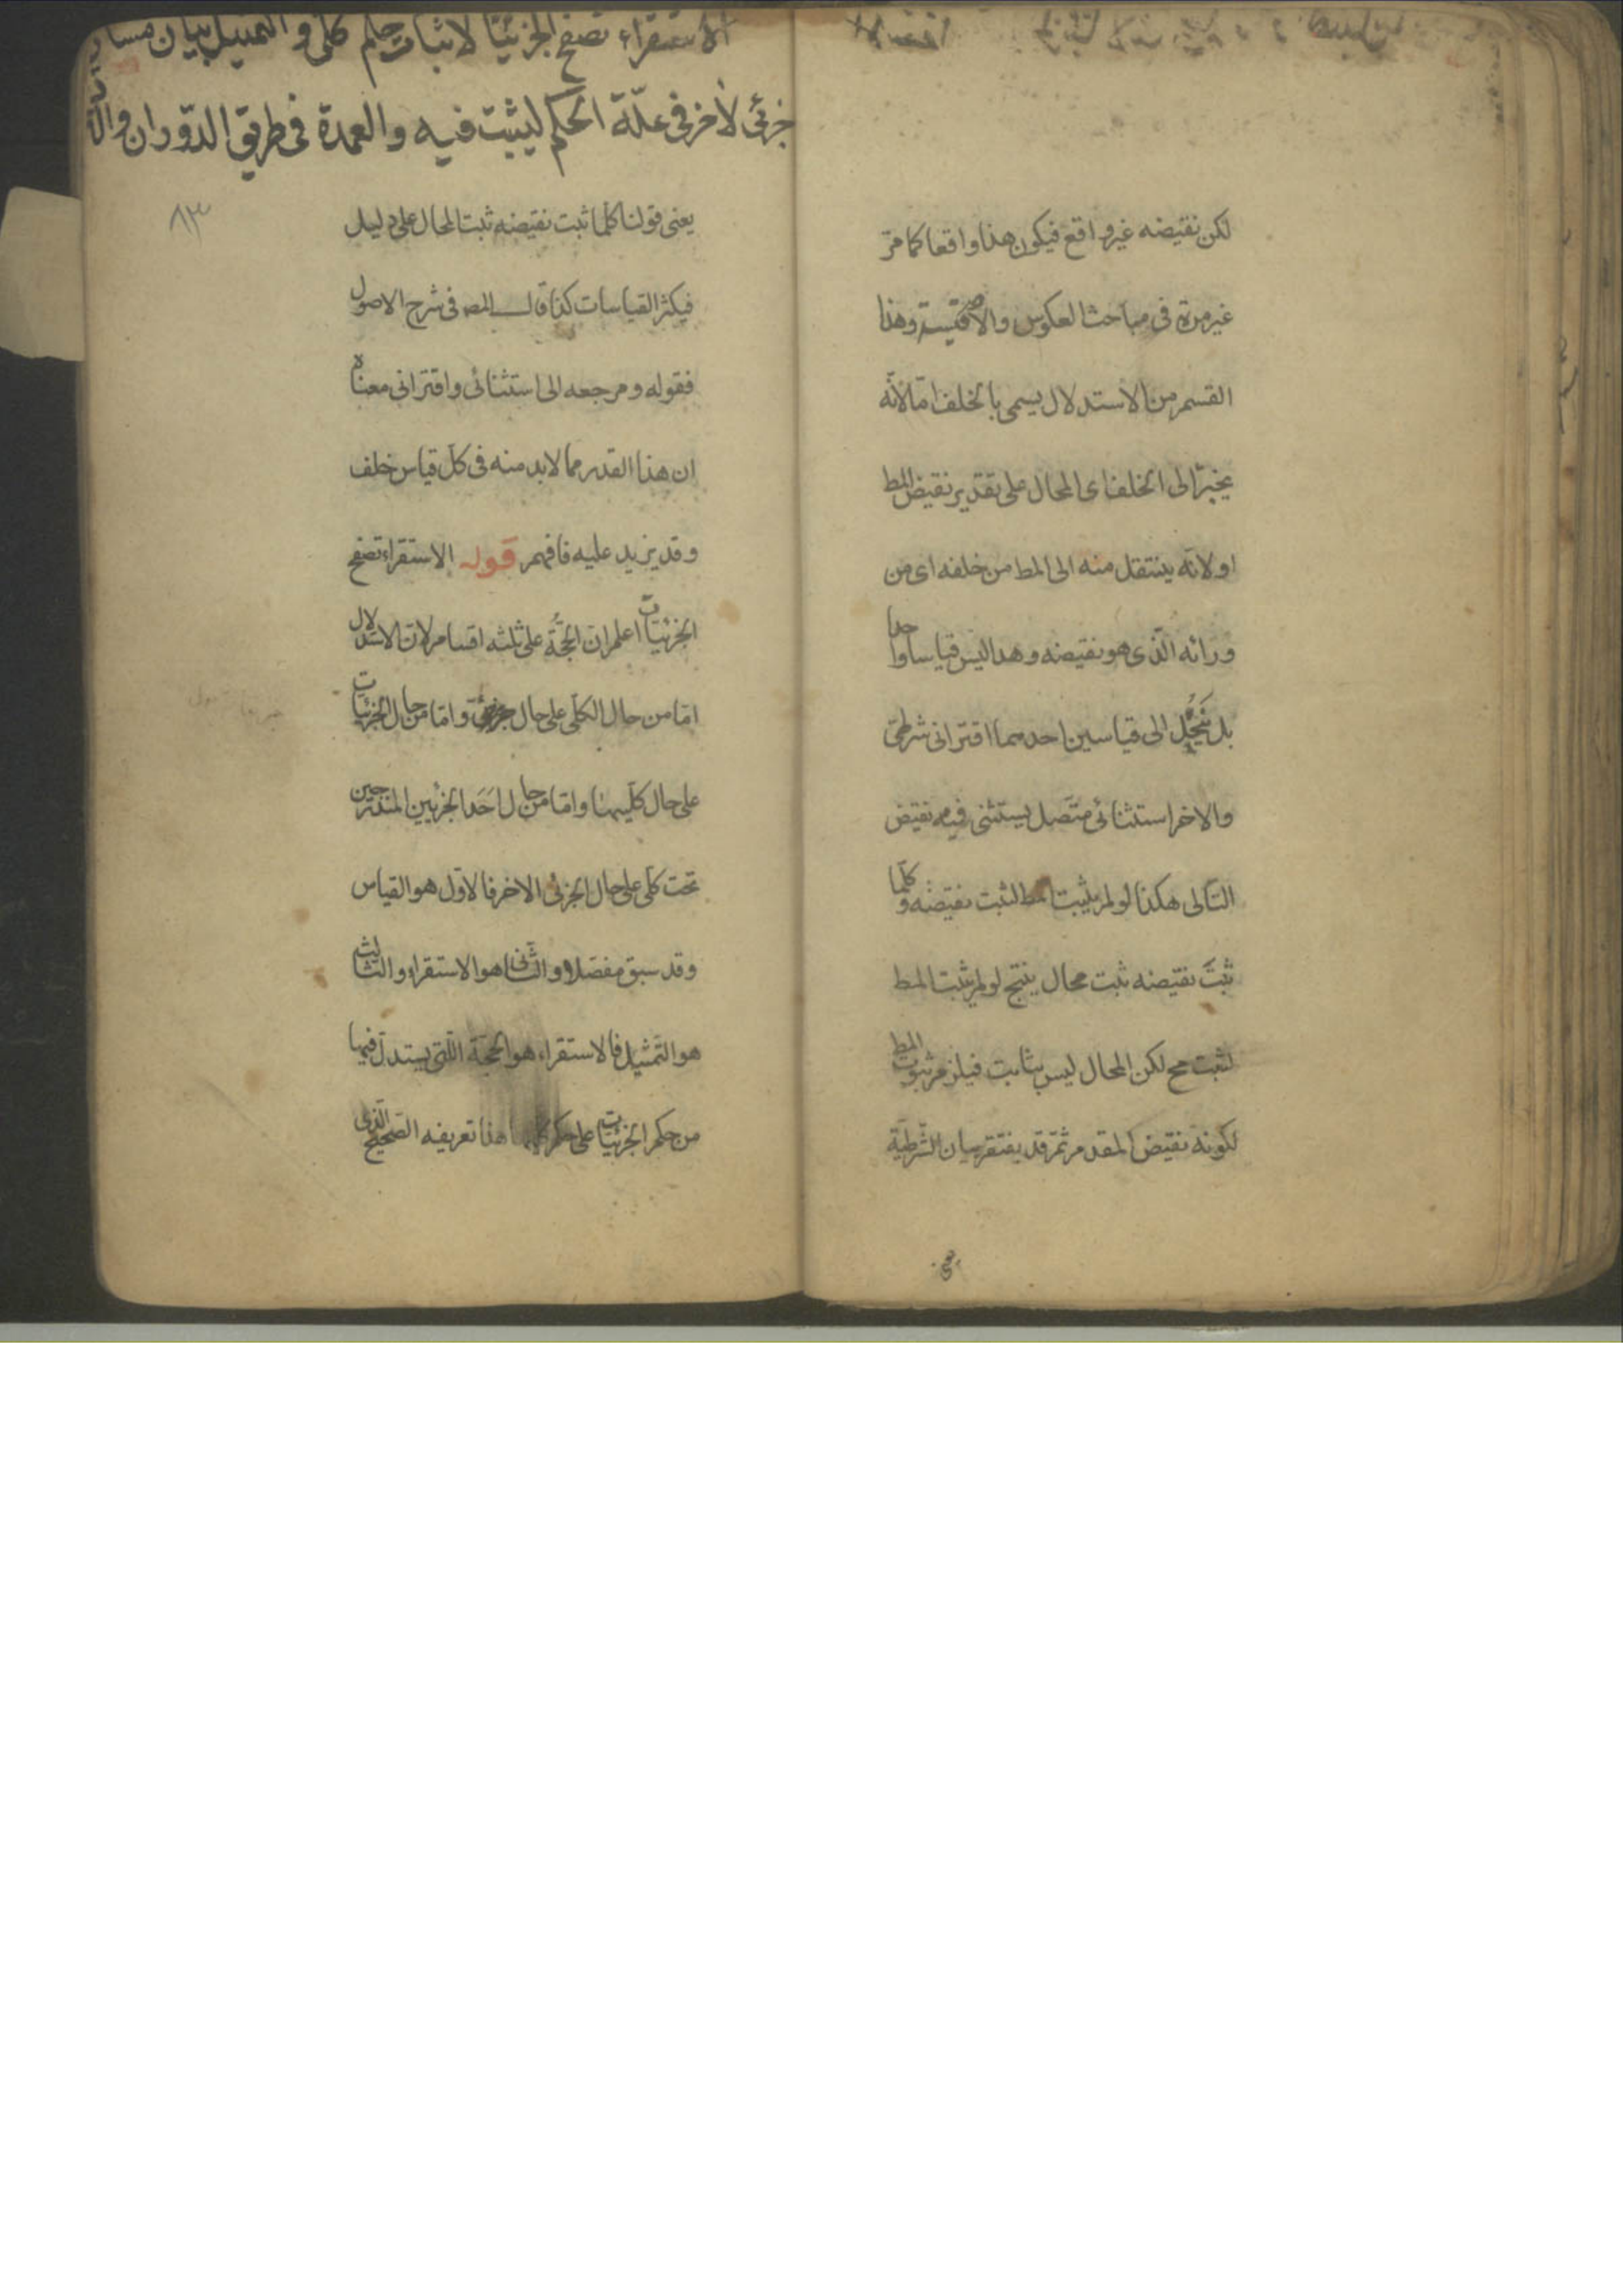 لكن نقيضه غير واقع فيكون هذا واقعا كما مرّ
غير مرة في مباحث العكوس والاقيسة وهذا
القسم من الاستدلال يسمى بالخلف امّا لانّه
ينجرّ الى الخلف اى المحال على تقدير نقيض المط
او لانّه ينتقل منه الى المط من خلفه اى من
ورائه الّذى هو نقيضه وهذا ليس قياسا واحدا
بل ينحلّ الى قياسين احدهما اقترانى شرطىّ
والاخر استثنائى متّصل يستثنى فيه نقيض
التّالى هكذا لو لم يثبت المط لثبت نقيضه وكلّما
ثبت نقيضه ثبت محال ينتج لو لم يثبت المط
لثبت مح لكن المحال ليس بثابت فيلزم ثبوت المط
لكونه نقيض المقدم ثمّ قد يفتقر بيان الشّرطيّة
الاستقراء تصفح الجزئيّات لاثبات حكم كلّى والتمثيل بيان
جزئى لاخر فى علّة الحكم ليثبت فيه والعمدة فى طريق الدّوران
٨٣
يعنى قولنا كلّما ثبت نقيضه ثبت المحال على دليل
فيكثر القياسات كذا قال المص فى شرح الاصول
فقوله ومرجعه الى استثنائى واقترانى معناه
ان هذا القدر مما لا بد منه فى كلّ قياس خلف
وقد يزيد عليه فافهم قوله الاستقراء تصفح
الجزئيّات اعلم انّ الحجّة على ثلثه اقسام لانّ الاستدلال
امّا من حال الكلّى على حال جزئىّ وامّا من حال الجزئيّات
على حال كلّيها وامّا من حال احد الجزئيين المندرجين
تحت كلّى على حال الجزئى الاخر فالاوّل هو القياس
وقد سبق مفصّلا والثّانى هو الاستقراء والثّالث
هو التّمثيل فالاستقراء هو الحجّة الّتى يستدلّ فيها
من حكم الجزئيّات على حكم كلّيها هذا تعريفه الصّحيح الّذى